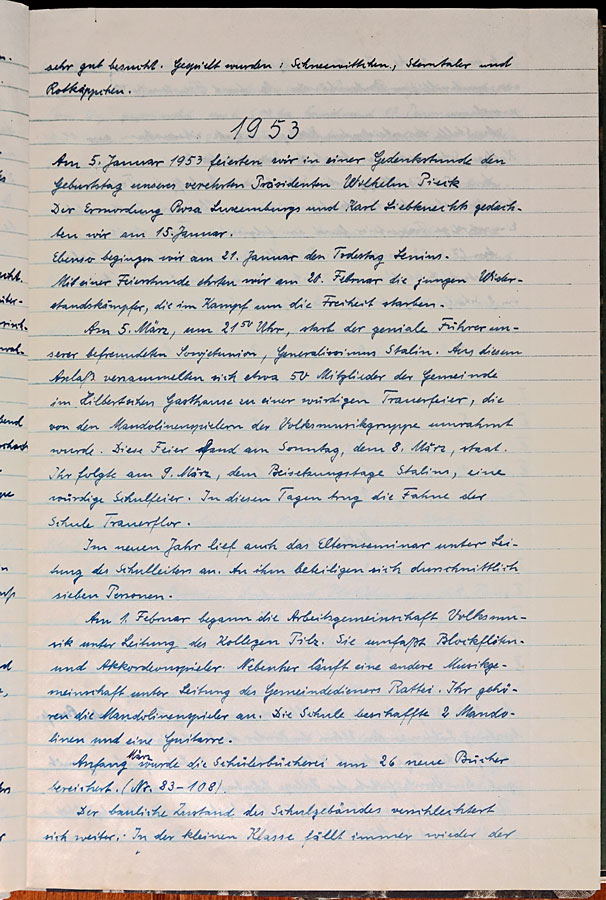 sehr gut besucht. Gespielt wurden: Schneewittchen, Sterntaler und
Rotkäppchen.
1953
Am 5. Januar 1953 feierten wir in einer Gedenkstunde den
Geburtstag unseres verehrten Präsidenten Wilhelm Pieck
Der Ermordung Rosa Luxemburgs und Karl Liebknechts gedach-
ten wir am 15. Januar.
Ebenso begingen wir am 21. Januar den Todestag Lenins.
Mit einer Feierstunde ehrten wir am 20. Februar die jungen Wider-
standskämpfer, die im Kampf um die Freiheit starben.
Am 5. März, um 21⁵⁰ Uhr, starb der geniale Führer un-
serer befreundeten Sowjetunion, Generalissimus Stalin. Aus diesem
Anlaß versammelten sich etwa 50 Mitglieder der Gemeinde
im Gasthause zu einer würdigen Trauerfeier, die
von den Mandolinenspielern der Volksmusikgruppe umrahmt
wurde. Diese Feier fand am Sonntag, dem 8. März, statt.
Ihr folgte am 9. März, dem Beisetzungstage Stalins, eine
würdige Schulfeier. In diesen Tagen trug die Fahne der
Schule Trauerflor.
Im neuen Jahr lief auch das Elternseminar unter Lei-
tung des Schulleiters an. An ihm beteiligen sich durschnittlich
sieben Personen.
Am 1. Februar begann die Arbeitsgemeinschaft Volksmu-
sik unter Leitung des Kollegen Pilz. Sie umfaßt Blockflöten-
und Akkordeonspieler. Nebenher läuft eine andere Musikge-
meinschaft unter Leitung des Gemeindedieners Rattei. Ihr gehö-
ren die Mandolinenspieler an. Die Schule beschaffte 2 Mando-
linen und eine Guitarre.
Anfang März wurde die Schülerbücherei um 26 neue Bücher
bereichert. (Nr. 83-108).
Der bauliche Zustand des Schulgebäudes verschlechtert
sich weiter. In der kleinen Klasse fällt immer wieder der